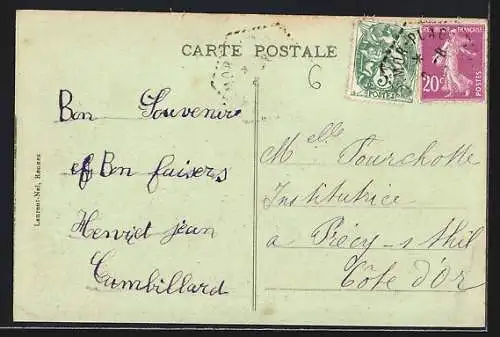 CARTE POSTALE
6
Bon Souvenir
et Bon baisers
Henriet jean
Cambillard
Melle Fourchotte
Institutrice
a Précy-s-thil
Côte d'Or
Laurent-Nel, Rennes
5c
POSTES
FRANÇAISE
20c
POSTES
MOR-PLAGE